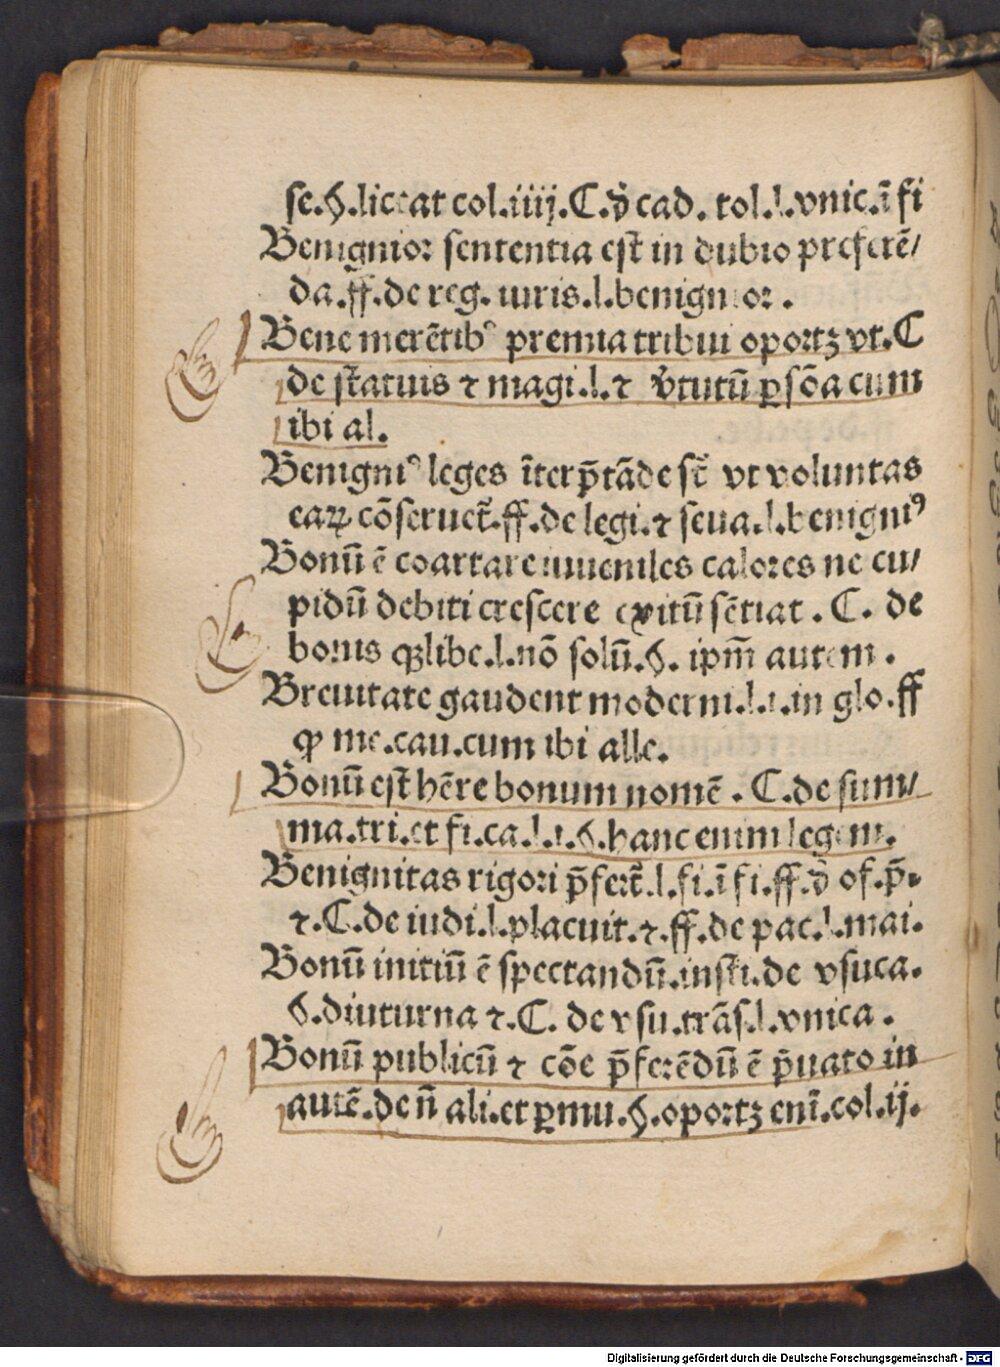 se.§.liceat col.iiij.C.d̓ cad. tol.l.vnic.ī fi
Benignior sententia est in dubio preferē/
da.ff.de reg. iuris.l.benignior.
Bene merētibꝰ premia tribui oportꝫ vt.C
de statuis ⁊ magi.l.⁊ v̓tutū ꝑsōa cum
ibi al.
Benigniꝰ leges īterp̄tāde sūt vt voluntas
eaꝝ cōseruet̄.ff.de legi.⁊ sena.l.benigniꝰ
Bonū ē coartare iuueniles calores ne cu/
pidū debiti crescere exitū sētiat. C. de
bonis q̄ libe.l.nō solū.§. ipm̄ autem.
Breuitate gaudent moderni.l.i.in glo.ff
ꝙ me.cau.cum ibi alle.
Bonū est hēre bonum nomē. C.de sum/
ma.tri.et fi.ca.l.i.§.hanc enim legem.
Benignitas rigori p̄fert̄.l.fi.ī fi.ff.d̓ of.p̄.
⁊.C.de iudi.l.placuit.⁊.ff.de pac.l.mai.
Bonū initiū ē spectandū.insti.de vsuca.
§.diuturna ⁊.C. de vsu.trās.l.vnica.
Bonū publicū ⁊ cōe p̄ferēdū ē p̓uato in
autē.de n̄ ali.et ꝑmu.§.oportꝫ enī.col.ij.
Digitalisierung gefördert durch die Deutsche Forschungsgemeinschaft - DFG